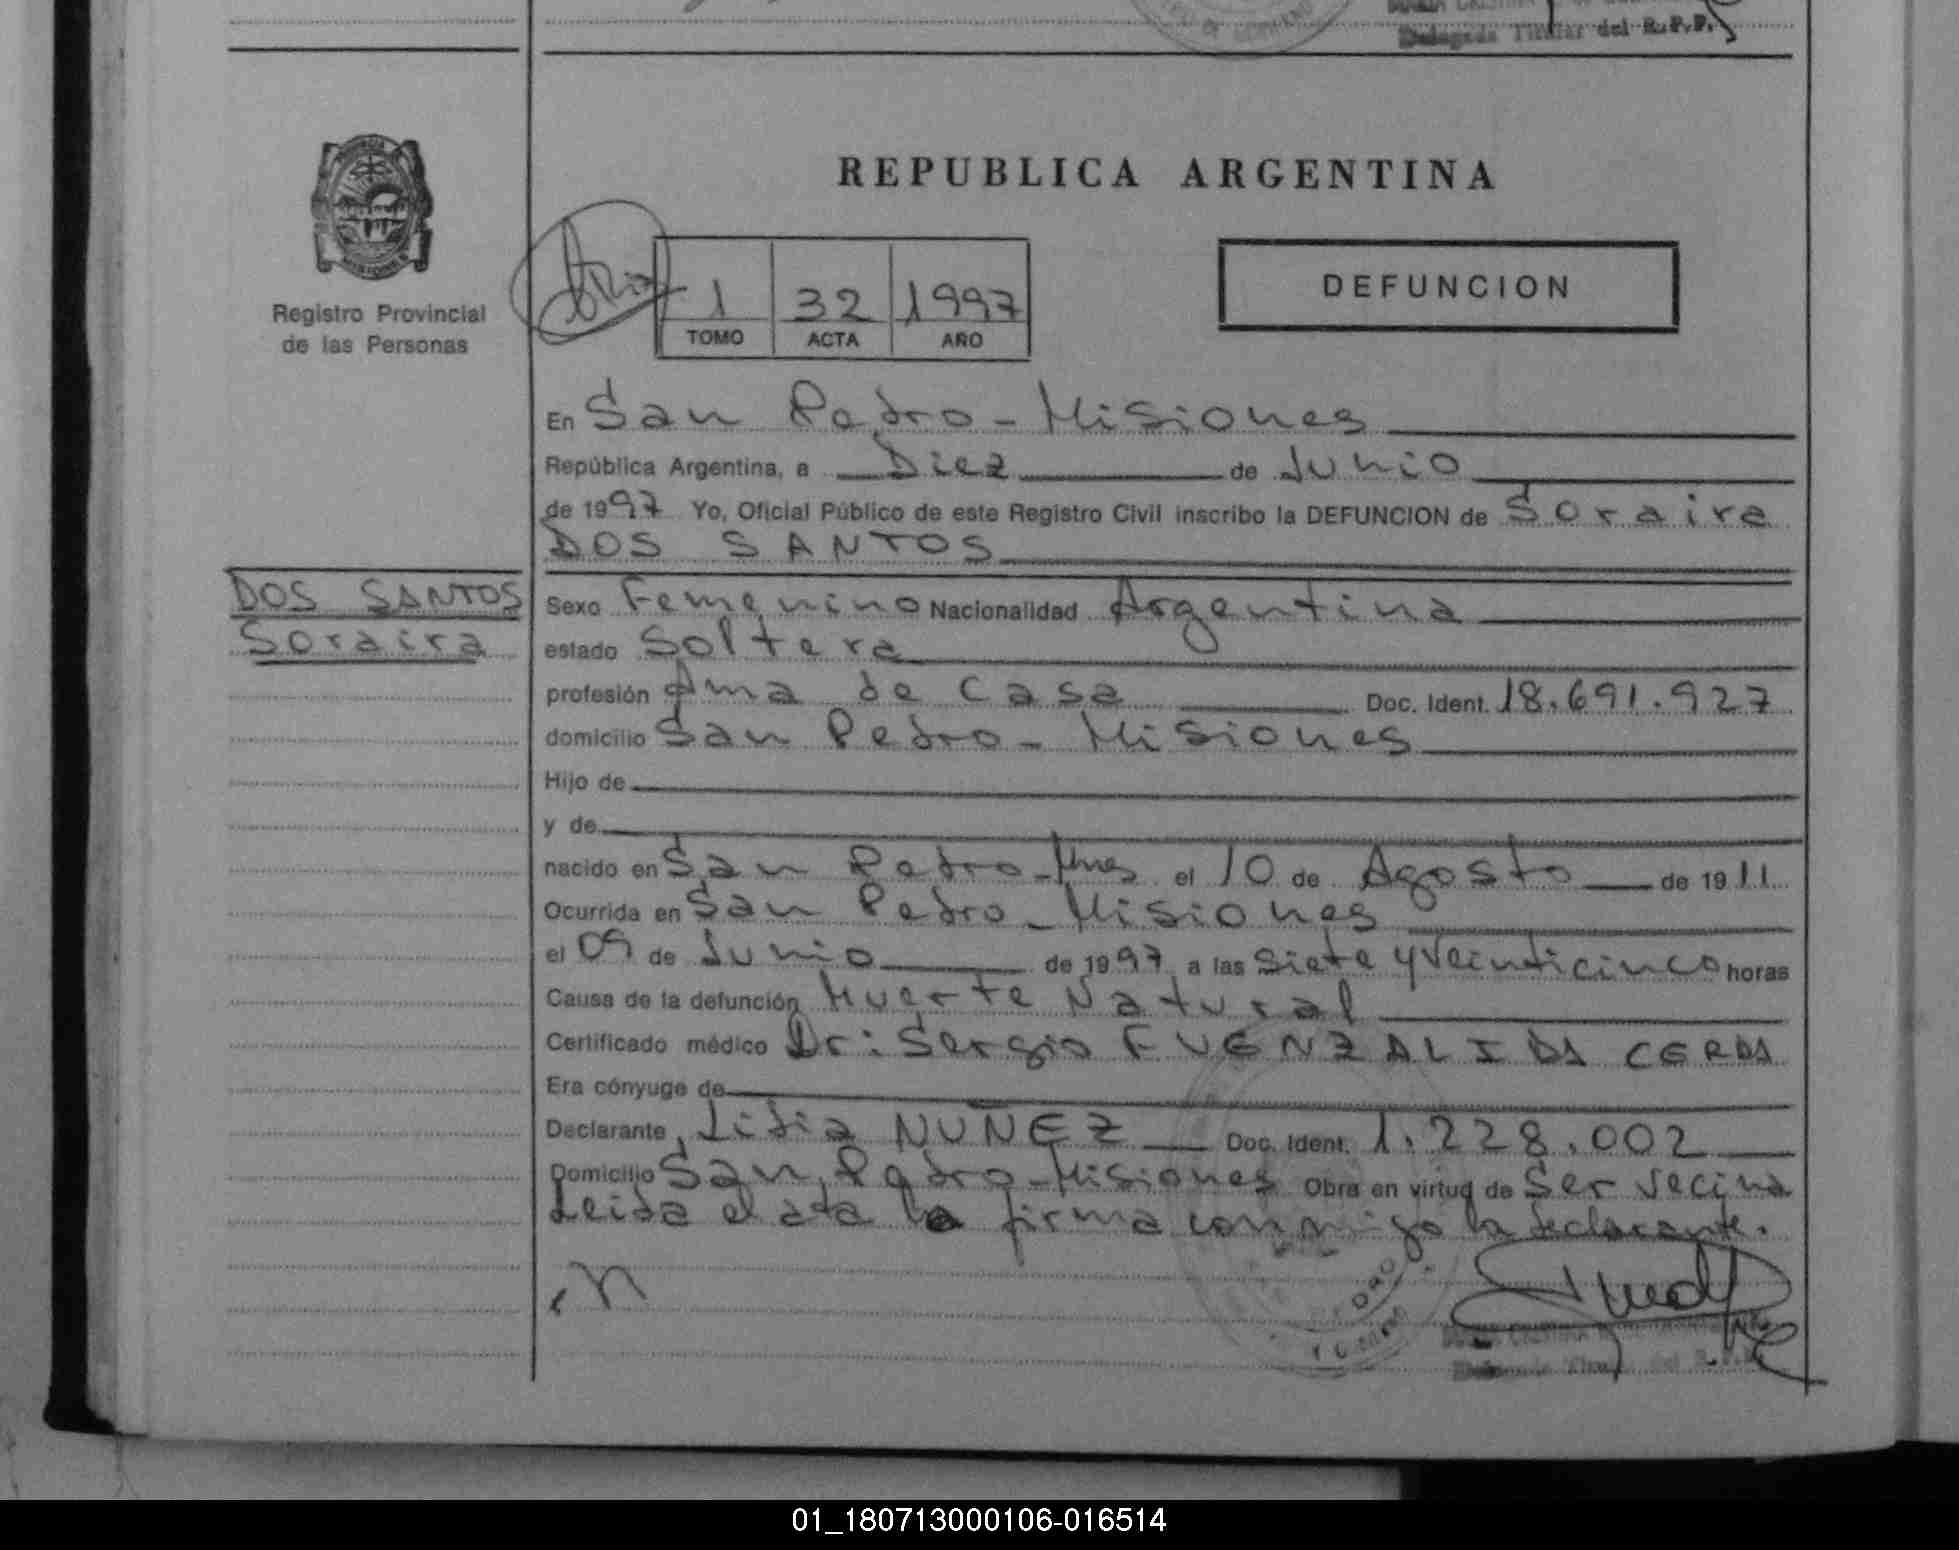 Delegada Titular del R.P.P.
Registro Provincial
de las Personas
REPUBLICA ARGENTINA
1 32 1997
TOMO ACTA AÑO
DEFUNCION
En San Pedro - Misiones
República Argentina, a Diez de Junio
de 1997 Yo, Oficial Público de este Registro Civil inscribo la DEFUNCION de Soraira
DOS SANTOS
DOS SANTOS
Soraira
Sexo Femenino Nacionalidad Argentina
estado Soltera
profesión Ama de Casa Doc. Ident. 18.691.927
domicilio San Pedro - Misiones
Hijo de
y de
nacido en San Pedro - Mnes el 10 de Agosto de 1911
Ocurrida en San Pedro - Misiones
el 09 de Junio de 1997 a las Siete y Veinticinco horas
Causa de la defunción Muerte Natural
Certificado médico Dr: Sergio FUENZALIDA CERDA
Era cónyuge de
Declarante, Lidia NUÑEZ Doc. Ident. 1.228.002
Domicilio San Pedro - Misiones Obra en virtud de Ser Vecina
Leida el acta la firma conmigo la declarante.
01_180713000106-016514